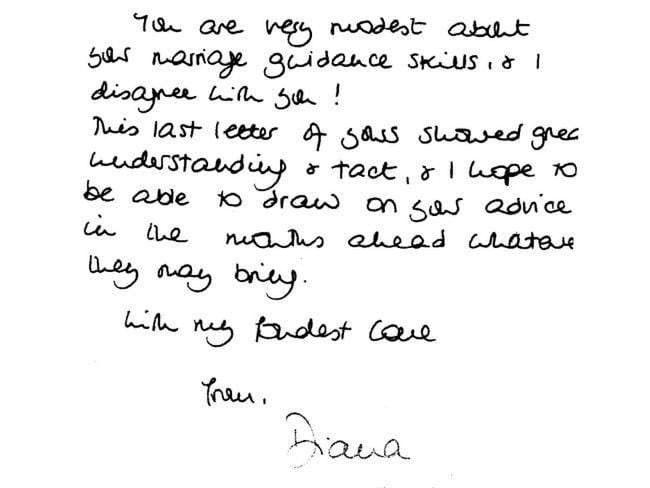 You are very modest about
your marriage guidance skills, & I
disagree with you!
This last letter of yours showed grea
understanding & tact, & I hope to
be able to draw on your advice
in the months ahead whateve
they may bring.
With my fondest love
from,
Diana